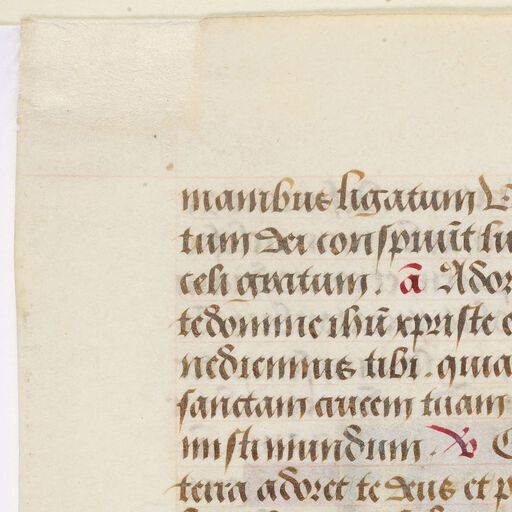 manibus ligatum V
tum dei conspuūt lu
celi gratum. ā Ador
te domine ihū xpriste e
nedicimus tibi. quia
sanctam crucem tuam
misti mundum. V O
terra adoret te deus et p